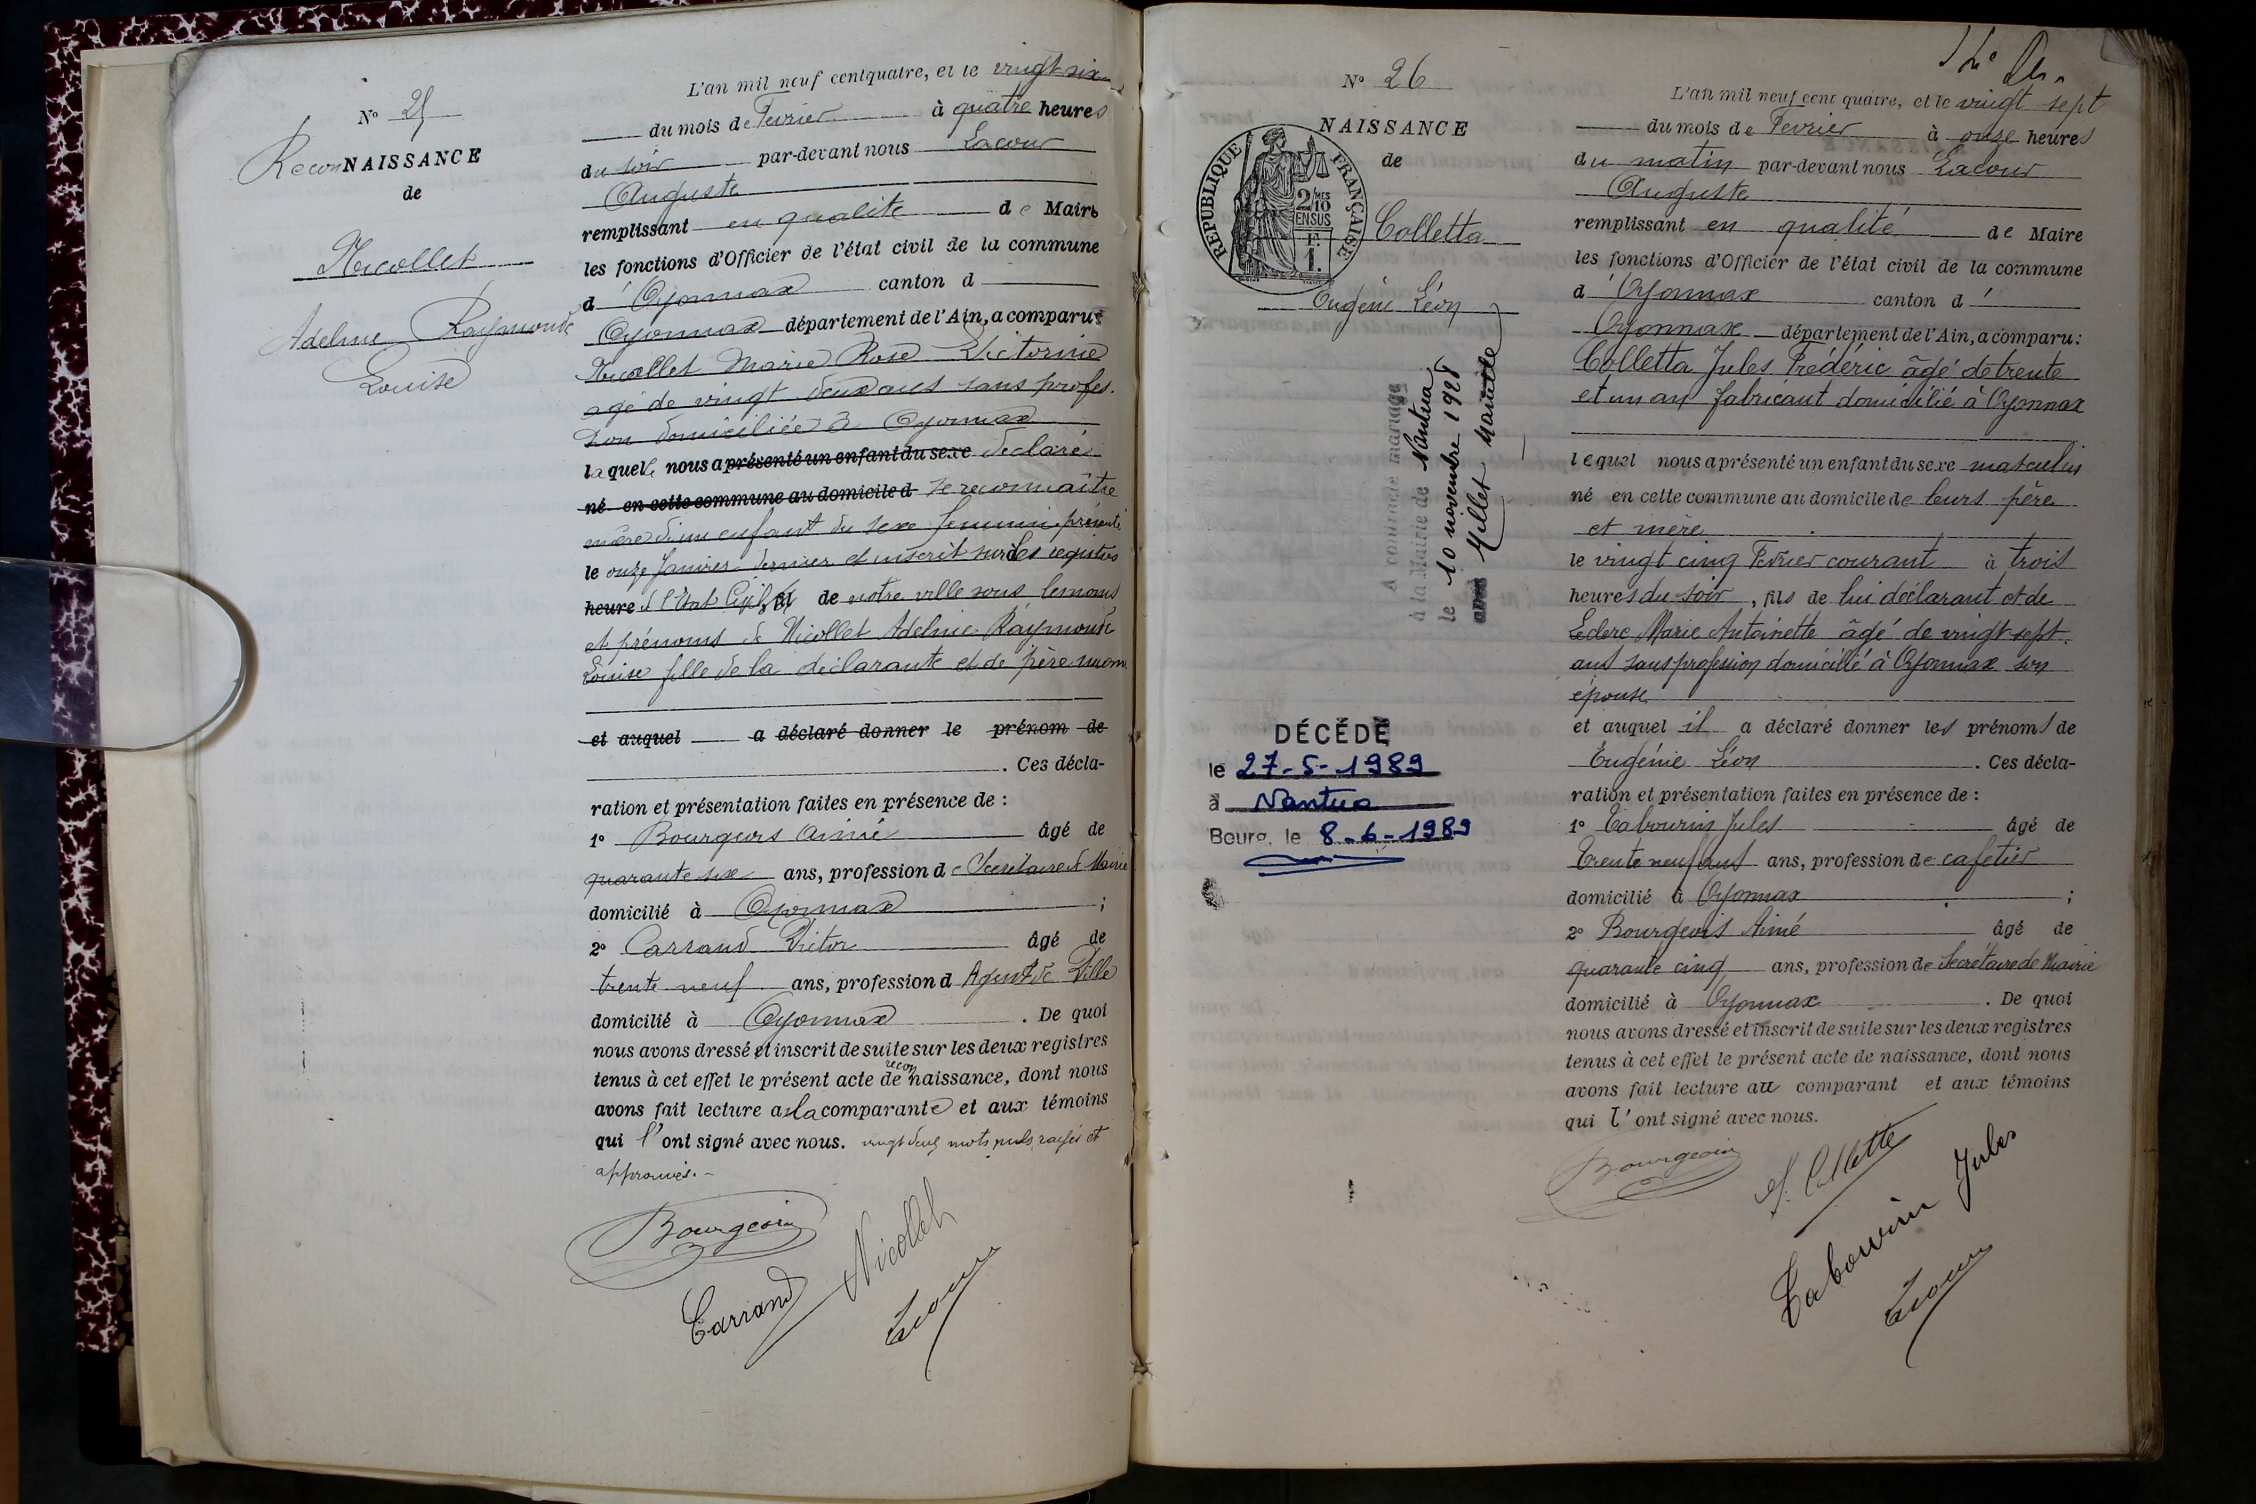 N° 25
ReconNAISSANCE
de
Nicollet
Adeline Raymonde
Louise
L'an mil neuf cent quatre, et le vingt six
du mois de Fevrier à quatre heures
du soir par-devant nous Lacour
Auguste
remplissant en qualité de Maire
les fonctions d'Officier de l'état civil de la commune
d'Oyonnax canton d
Oyonnax département de l'Ain, a comparu
Nicollet Marie Rose Victorine
agé de vingt deux ans sans profes-
sion domiciliée à Oyonnax
laquelle nous a présenté un enfant du sexe déclaré
né en cette commune au domicile d se reconnaître
mère d'un enfant du sexe feminin présenté
le onze Janvier dernier et inscrit sur les registres
heure d l'Etat Civil de notre ville sous les noms
et prénoms de Nicollet Adeline Raymonde
Louise fille de la déclarante et de père
et auquel a déclaré donner le prénom de
. Ces décla-
ration et présentation faites en présence de :
1° Bourgeois Aimé âgé de
quarante six ans, profession de Secrétaire de Mairie
domicilié à Oyonnax ;
2° Carrand Victor âgé de
trente neuf ans, profession d Agent de Ville
domicilié à Oyonnax . De quoi
nous avons dressé et inscrit de suite sur les deux registres
tenus à cet effet le présent acte de reconnaissance, dont nous
avons fait lecture a la comparante et aux témoins
qui l'ont signé avec nous. vingt deux mots nuls rayés et
approuvés.-
Bourgeois
Nicollet
Carrand
Lacour
N° 26
NAISSANCE
de
RÉPUBLIQUE FRANÇAISE
2/10 MES
EN SUS
1 F.
Colletta
Eugénie Léon
A contracté mariage
à la Mairie de Nantua
le 10 novembre 1928
avec Millet
DÉCÉDÉ
le 27-5-1989
à Nantua
Bourg, le 8-6-1989
L'an mil neuf cent quatre, et le vingt sept
du mois de Fevrier à onze heures
du matin par-devant nous Lacour
Auguste
remplissant en qualité de Maire
les fonctions d'Officier de l'état civil de la commune
d'Oyonnax canton d'
Oyonnax département de l'Ain, a comparu :
Colletta Jules Frédéric âgé de trente
et un an fabricant domicilié à Oyonnax
lequel nous a présenté un enfant du sexe masculin
né en cette commune au domicile de leurs père
et mère
le vingt cinq Fevrier courant à trois
heures du soir, fils de lui déclarant et de
Leclerc Marie Antoinette âgé de vingt sept
ans sans profession domicilié à Oyonnax son
épouse
et auquel il a déclaré donner les prénoms de
Eugénie Léon . Ces décla-
ration et présentation faites en présence de :
1° Tabourin Jules âgé de
Trente neuf ans ans, profession de cafetier
domicilié à Oyonnax ;
2° Bourgeois Aimé âgé de
quarante cinq ans, profession de Secrétaire de Mairie
domicilié à Oyonnax . De quoi
nous avons dressé et inscrit de suite sur les deux registres
tenus à cet effet le présent acte de naissance, dont nous
avons fait lecture au comparant et aux témoins
qui l'ont signé avec nous.
Bourgeois
Tabourin Jules
Lacour